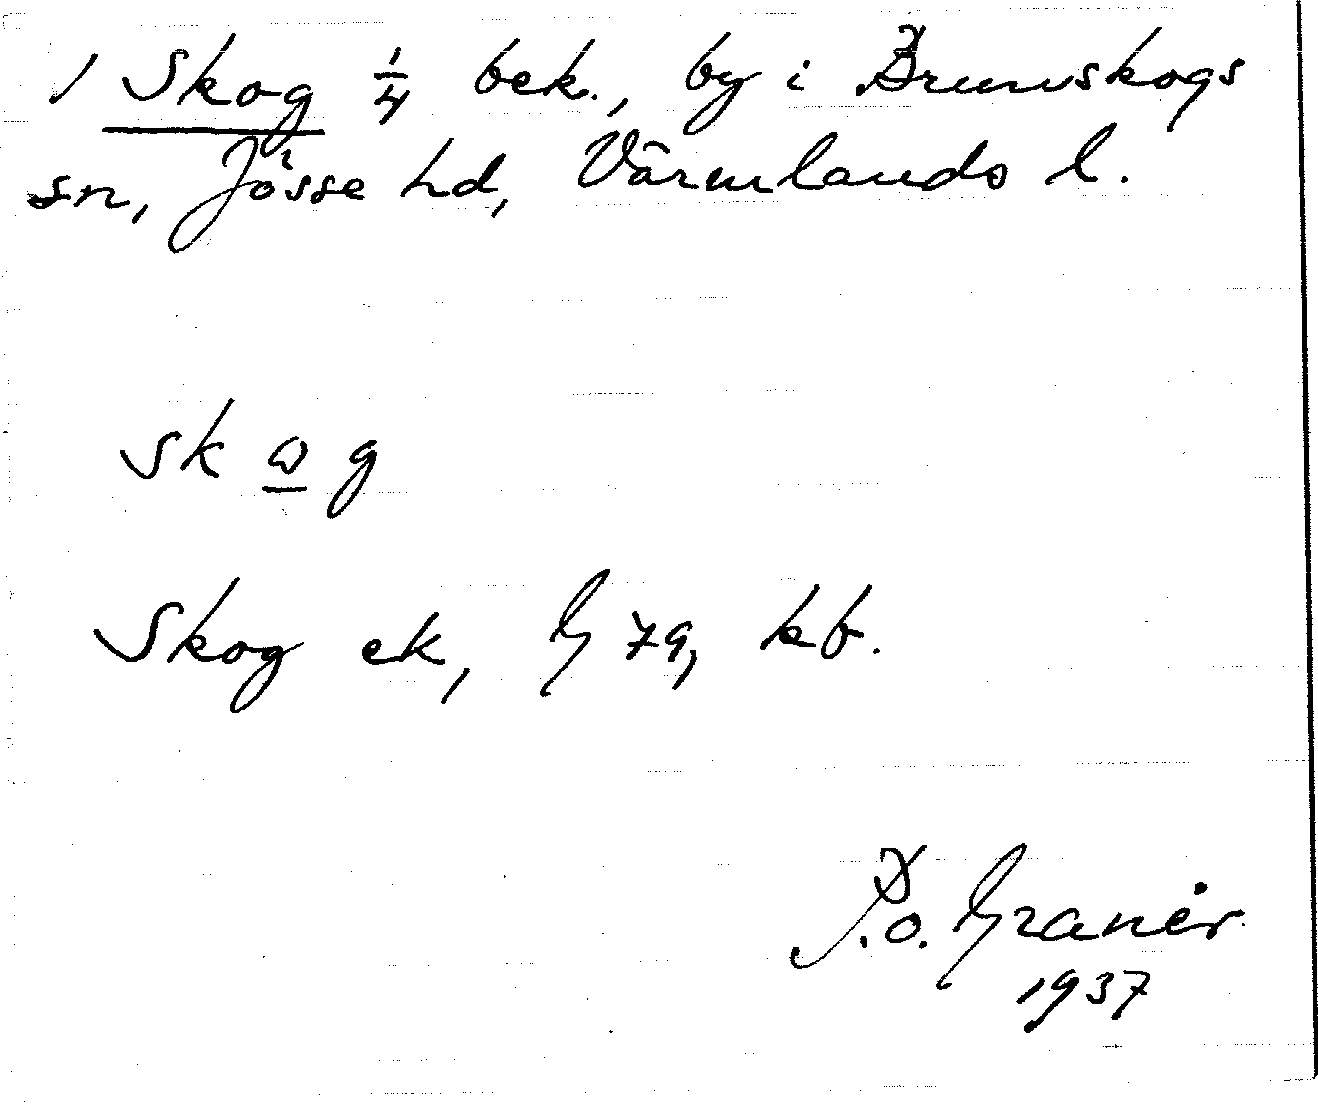 1 Skog ¼ bek., by i Brunskogs
sn, Jösse hd, Värmlands l.
sk ω g
Skog ek, G 79, kb.
P.O. Granér
1937